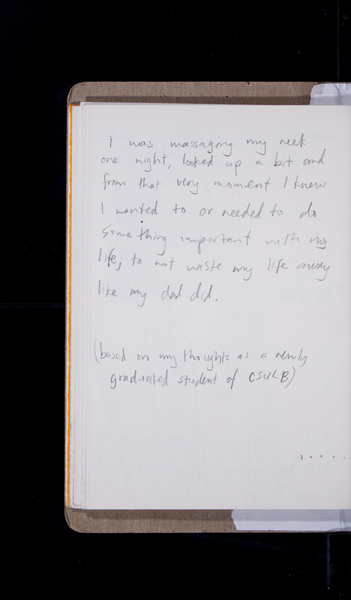 I was massaging my neck
one night, looked up a bit and
from that very moment I knew
I wanted to or needed to do
something important with my
life; to not waste my life away
like my dad did.
(based on my thoughts as a newly
graduated student of CSULB)